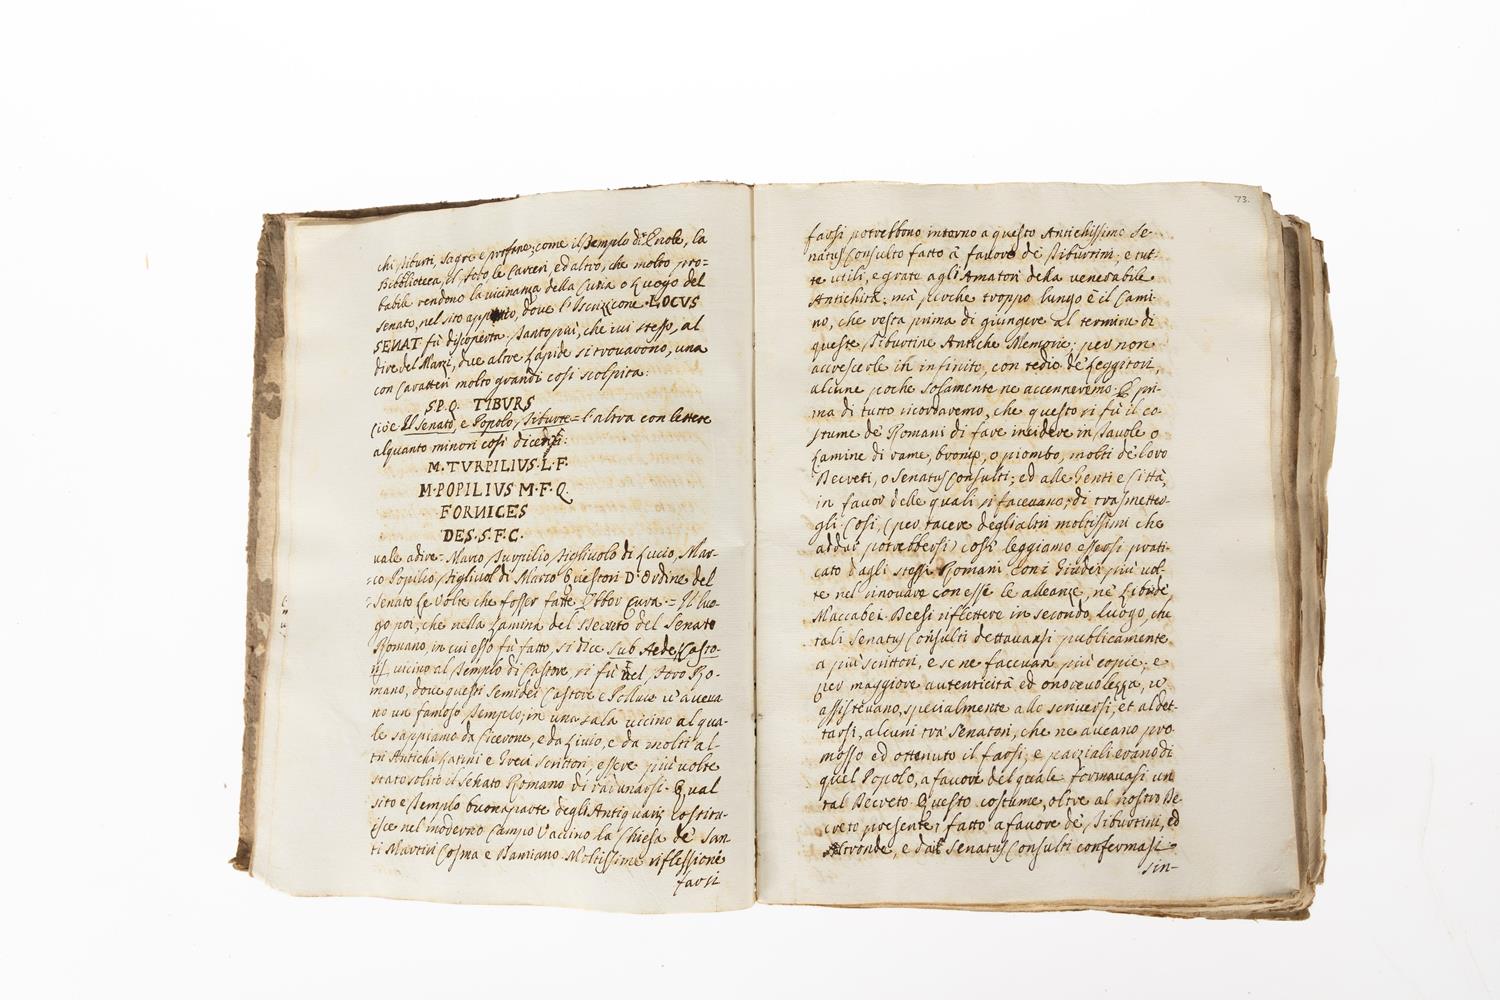 chi Tiburti, sagre e profane; come il Templo di Ercole, la
Bibblioteca, il Foro le Carceri, ed altro, che molto pro=
babile rendono la vicinanza della Curia o Luogo del
Senato, nel sito dove l'Iscrizzione LOCUS
SENAT fù discoperta. Tanto più, che ivi stesso, al
dire del Marzi, due altre Lapide si trovavono, una
con Caratteri molto grandi così scolpita:
S.P.Q. TIBVRS
Cioè il Senato, e Popolo Tiburte = l'altra con lettere
alquanto minori così dicenti:
M. TVRPILIUS L. F.
M. POPILIVS M. F. Q.
FORNICES
DES. S. F. C.
vale a dire = Marco Turpilio Figlivolo di Lucio, Mar-
co Popilio Figlivol di Marco Questori D'Ordine del
Senato Le Volte che fosser fatte Ebber Cura = Il luo-
go poi, che nella Lamina del Decreto del Senato
Romano, in cui esso fù fatto, si dice Sub Aede Casto-
ris, vicino al Templo di Castore, si fù nel Foro Ro-
mano, dove questi Semidei Castore e Polluce v'aveva
no un famoso Templo, in una sala vicino al qua-
le sappiamo da Cicerone, e da Livio, e da molti al-
tri Antichi Latini e Greci Scrittori, essere più volte
stato solito il Senato Romano di radunarsi. Qual
sito e Templo buona parte degli Antiquarj costitu-
isce nel moderno Campo Vaccino la Chiesa de San
ti Martiri Cosma e Damiano. Moltissime riflessioni
farsi
73.
farsi potrebbono intorno a questo Antichissimo Se-
natus Consulto fatto à favore de Tiburtini, e tut-
te utili, e grate agli Amatori della venerabile
Antichità; mà perche troppo lungo è il Cami-
no, che resta prima di giungere al termine di
queste Tiburtine Antiche Memorie; per non
accrescerle in infinito, con tedio de' Leggitori,
alcune poche solamente ne accenneremo. E pri-
ma di tutto ricordaremo, che questo si fù il co-
stume de' Romani di fare incidere in Tavole o
Lamine di rame, bronzo, o piombo, molti de loro
Decreti, o Senatus Consulti; ed alle Genti e Città,
in favor delle quali si facevano, di trasmetter-
gli. Così, (per tacere degli altri moltissimi che
addur potrebbersi) così leggiamo essersi prati-
cato dagli stessi Romani con i Giudei più vol-
te nel rinovare con esse le alleanze, ne' Libri de'
Maccabei. Deesi riflettere in secondo luogo, che
tali Senatus Consulti dettavansi publicamente
a più scrittori, e se ne facevan più copie; e
per maggiore autenticità ed onorevolezza, v'
assistevano, specialmente allo scriversi, et al det-
tarsi, alcuni trà Senatori, che ne aveano pro
mosso ed ottenuto il farsi, e parziali erano di
quel Popolo, a favore del quale formavasi un
tal Decreto. Questo costume, oltre al nostro De-
creto presente, fatto a favore de' Tiburtini, ed
Altronde, e da Senatus Consulti confermasi
sin-